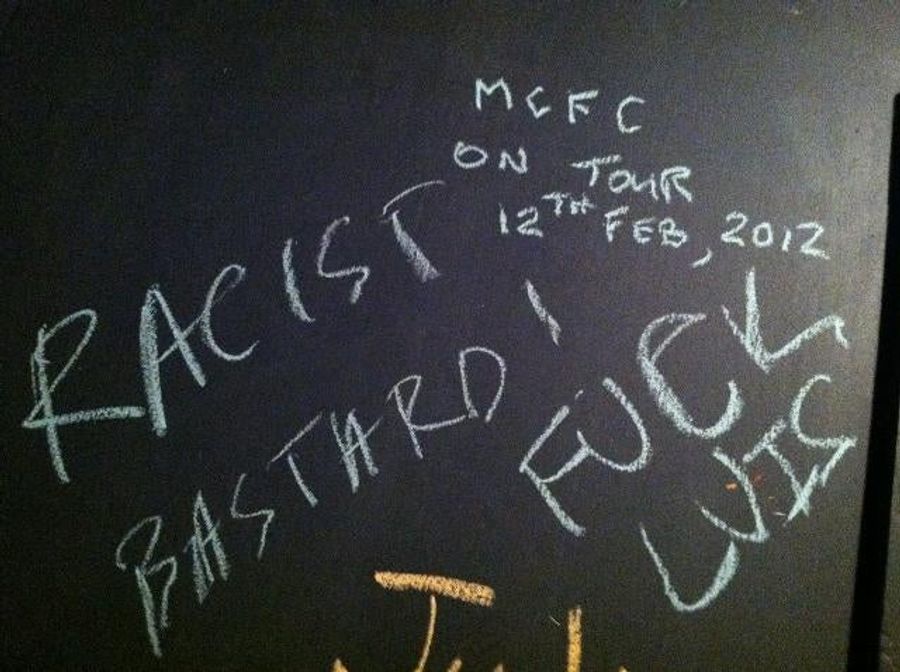 MCFC
ON TOUR
12TH FEB, 2012
RACIST
BASTARD
FUCK
LUIS